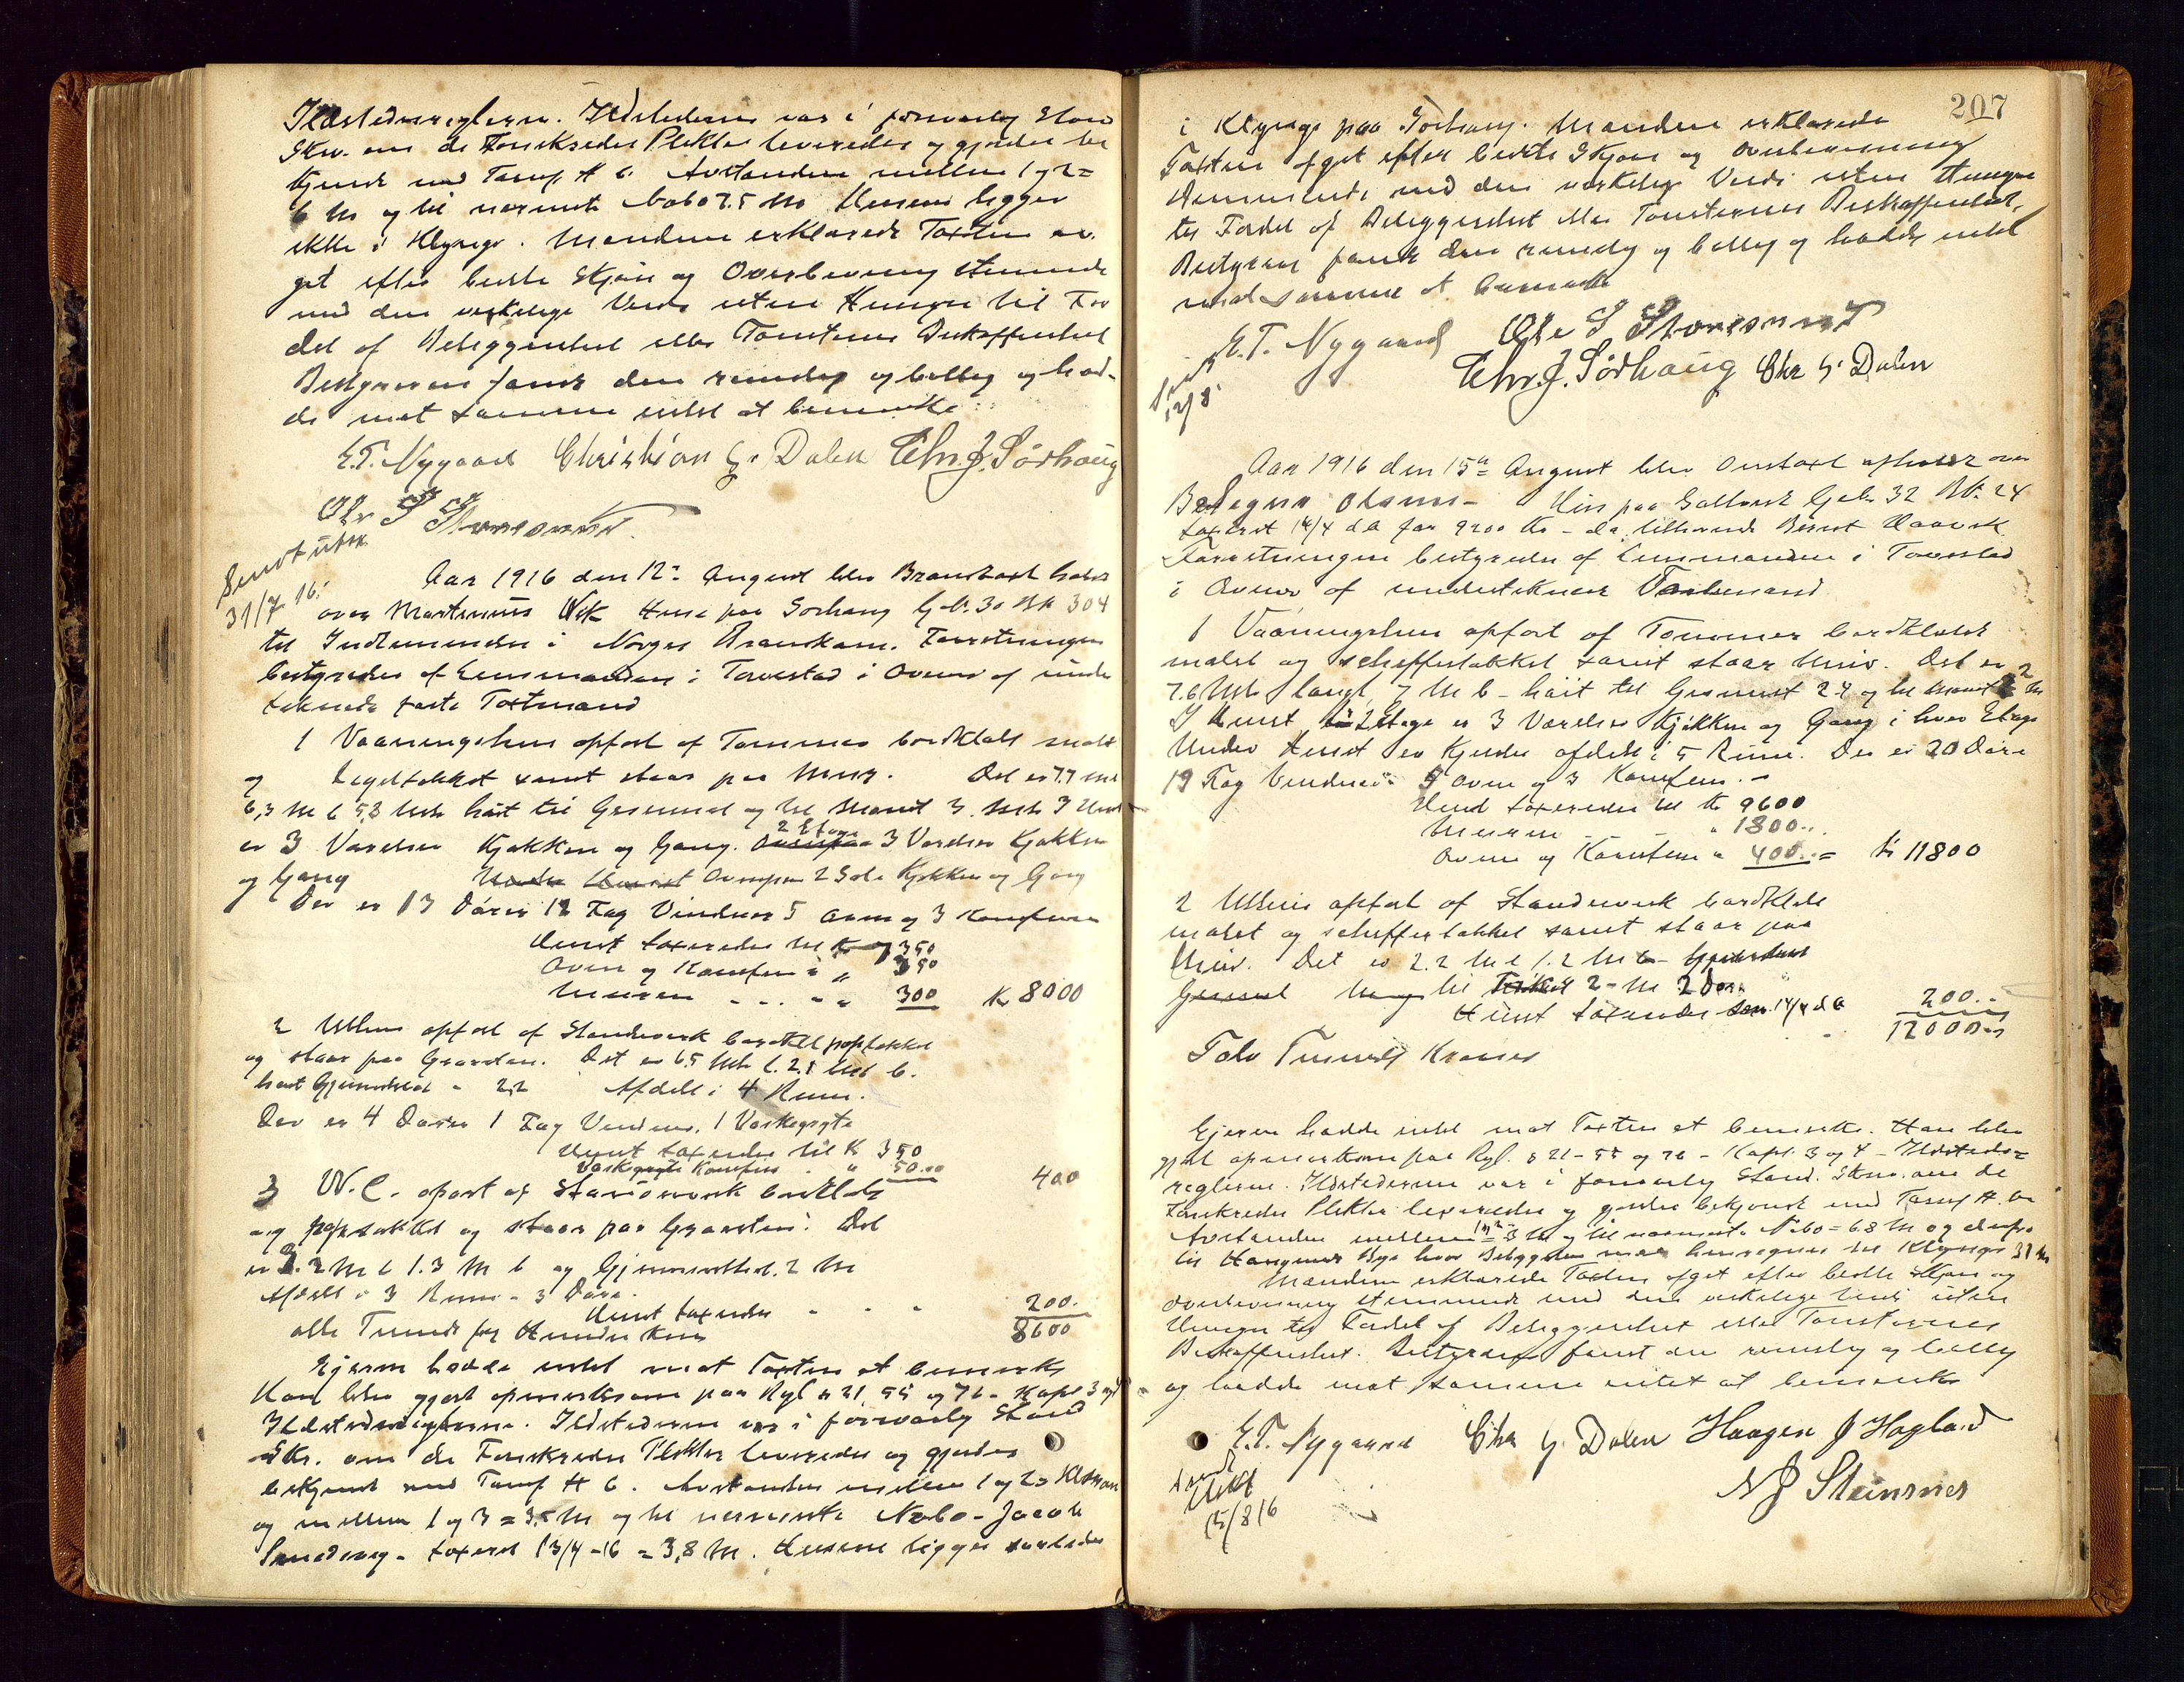 Ildstedsreglerne. Ildstederne var i forsvarlig Stan
Skr. om de Forskredne Plikter leveredes og gjordes be
kjendt med Tarif H 6. Avstanden mellem 1 og 2 =
6 M og til nærmeste Nabo 75 M. Husene ligger
ikke i Klynge. Mændene erklærede Taxten av
get efter bedste Skjøn og Overbevisning stemmende
med den virkelige Verdi uten Hensyn til For
del af Beliggenhed eller Tomternes Beskaffenhed
Bestyreren fandt den rimelig og billig og had-
de mot samme intet at bemerke
E.T. Nygaard Christian G. Dalen Chr. J. Sörhaug
Ole S Storesund
Sendt utsk
31/7 16.
Aar 1916 den 12te August blev Brandtaxt holdt
over Martinius Vik Huse paa Sørhaug G.Nr. 30 BN 304
til Indlemmelse i Norges Brandkasse. Forretningen
bestyredes af Lensmanden i Torvestad i Overvær af under
tegnede faste Taxtmænd
1 Vaaningshus opført af Tømmer bordklædt malt
og tegltækket samt staar paa Mur. Det er 7.7 M l
6,3 M b 5,3 M høit til Gesimsen og til Mønet 3 M. I Huset
er 3 Værelser Kjøkken og Gang. 2 Etage 3 Værelser Kjøkken
og Gang Ovenpaa 2 Sale Kjøkken og Gang
Der er 13 Dører 12 Fag Vinduer 5 Ovne og 3 Komfurer
Huset taxeredes til Kr 7350
Ovne og Komfurer " 350
Muren " 300 Kr 8000
2 Uthus opført af Standerverk bordklædt paptækket
og staar paa Graasten. Det er 6.5 M l. 2.5 M b.
høit Gjennemsnitl " 2,2 Afdelt i 4 Rum.
Der er 4 Dører 1 Fag Vindue, 1 Vaskegryte
Huset taxeredes til Kr 350
Vaskegryte Komfur " 50.00 400
3 W.C. opført af Standerverk bordklædt
og paptækket og staar paa Graasten. Det
er 3.2 M l 1.3 M b og Gjennemsnitlhøi. 2 M
Afdelt i 3 Rum - 3 Døre.
Huset taxeredes " " " 200.
otte Tusinde sex Hundre Kroner 8600
Eieren hadde intet mot Taxten at bemerke
Han blev gjort opmerksom paa Rgl § 21, 55 og 76 - Kapt 3 og 4
Ildstedsreglerne. Ildstederne var i forsvarlig Stand
Skr. om de Forskredne Plikter leveredes og gjordes
bekjendt med Tarif H 6. Avstanden mellem 1 og 2 =
og mellem 1 og 3 = 3,5 M og til nærmeste Nabo - Jacob
taxeret 13/4 -16 = 3,8 M. Husene ligger saaledes
207
i Klynge paa Sørhaug. Mændene erklærede
Taxten afget efter bedste Skjøn og Overbevisning
stemmende med den virkelige Verdi uten Hensyn
til Fordel af Beliggenhet eller Tomternes Beskaffenhet,
Bestyreren fandt den rimelig og billig og hadde intet
mod samme at bemerke
E.T. Nygaard Ole S Storesund
Chr. J. Sörhaug Chr G. Dalen
12/8
Aar 1916 den 15de August blev Omtaxt afholdt over
Hus paa G.N. 32 BN. 24
taxeret 14/4 da for 9200 Kr - da tilhørende Bernt
Forretningen bestyredes af Lensmanden i Torvestad
i Overvær af undertegnede Taxtmænd
1 Vaaningshus opført af Tømmer bordklædt
malet og skiffertækket samt staar Mur. Det er
7.6 M langt, 7 M b - høit til Gesimset 24 og til Mønet 2 M
I Huset 2 Etage er 3 Værelser Kjøkken og Gang i hver Etage
Under Huset er Kjelder afdelt i 5 Rum. Der er 20 Døre
19 Fag Vinduer 5 Ovne og 3 Komfurer. -
Huset taxeredes til Kr 9600
Muren - - " 1800..
Ovne og Komfurer " 400.. = Kr 11800
2 Uthus opført af Standerverk bordklædt
malet og skiffertækket samt staar paa
Mur. Det er 2.2 M l 1.2 M b
til 2 - M 2 Dør.
Huset taxeredes som 14/4 da 200..
12000..
Tolv Tusinde Kroner
Eieren hadde intet mot Taxten at bemerke. Han blev
gjort opmerksom paa Rgl. § 21 - 55 og 76 - Kapt. 3 og 4 - Ildsteds=
reglerne. Ildstederne var i forsvarlig Stand. Skr. om de
Forskredne Plikter leveredes og gjordes bekjendt med Tarif H. 6
Avstanden mellem 1 og 2 = 3 M og til nærmeste Nabo = 6.8 M og derfra
til Haugesund By hvor Bebyggelsen maa henregnes til Klynge 31 M
Mændene erklærede Taxten afget efter bedste Skjøn og
Overbevisning stemmende med den virkelige Verdi uten
Hensyn til Fordel af Beliggenhet eller Tomternes
Beskaffenhet. Bestyreren fandt den rimelig og billig
og hadde mot samme intet at bemerke
E.T. Nygaard Chr G. Dalen Haagen J Hagland
N J Steinsnes
Sendt
Utskr
15/8 16